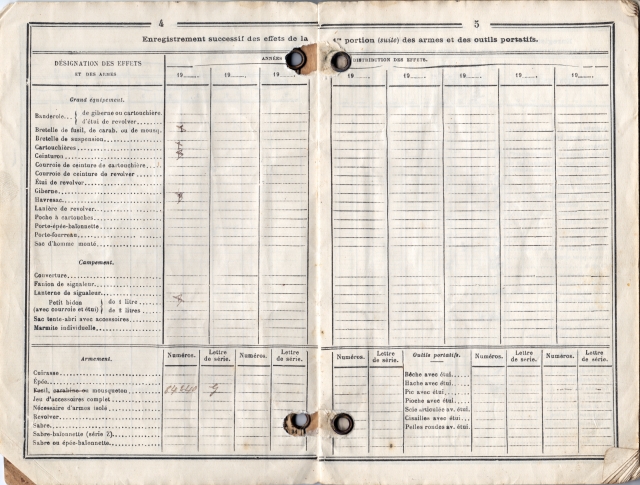 4
5
Enregistrement successif des effets de la 1re portion (suite) des armes et des outils portatifs.
DÉSIGNATION DES EFFETS
ET DES ARMES
ANNÉES
DISTRIBUTION DES EFFETS.
19 19 19 19 19 19 19 19 19
Grand équipement.
Banderole... de giberne ou cartouchière
d'étui de revolver
Bretelle de fusil, de carab. ou de mousq.
Bretelle de suspension
Cartouchières
Ceinturon
Courroie de ceinture de cartouchière
Courroie de ceinture de revolver
Étui de revolver
Giberne
Havresac
Lanière de revolver
Poche à cartouches
Porte-épée-baïonnette
Porte-fourreau
Sac d'homme monté
Campement.
Couverture
Fanion de signaleur
Lanterne de signaleur
Petit bidon (avec courroie et étui) de 1 litre
de 2 litres
Sac tente-abri avec accessoires
Marmite individuelle
Armement.
Numéros. Lettre de série. Numéros. Lettre de série. Numéros. Lettre de série. Outils portatifs. Numéros. Lettre de série. Numéros. Lettre de série.
Cuirasse
Épée
Fusil, carabine ou mousqueton
Jeu d'accessoires complet
Nécessaire d'armes isolé
Revolver
Sabre
Sabre-baïonnette (série Z)
Sabre ou épée-baïonnette
Bêche avec étui
Hache avec étui
Pic avec étui
Pioche avec étui
Scie articulée av. étui
Cisailles avec étui
Pelles rondes av. étui